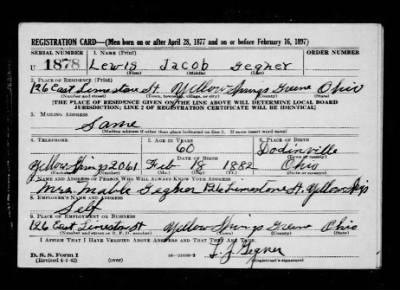 REGISTRATION CARD—(Men born on or after April 28, 1877 and on or before February 16, 1897)
SERIAL NUMBER 1. NAME (Print) ORDER NUMBER
U 1878 Lewis Jacob Gegner
(First) (Middle) (Last)
2. PLACE OF RESIDENCE (Print)
126 East Limestone St. Yellow Springs Greene Ohio
(Number and street) (Town, township, village, or city) (County) (State)
[THE PLACE OF RESIDENCE GIVEN ON THE LINE ABOVE WILL DETERMINE LOCAL BOARD
JURISDICTION; LINE 2 OF REGISTRATION CERTIFICATE WILL BE IDENTICAL]
3. MAILING ADDRESS
Same
(Mailing address if other than place indicated on line 2. If same insert word same)
4. TELEPHONE 5. AGE IN YEARS 6. PLACE OF BIRTH
60 Dodinville
DATE OF BIRTH (Town or county)
Yellow Springs 2061 Feb 18 1882 Ohio
(Exchange) (Number) (Mo.) (Day) (Yr.) (State or country)
7. NAME AND ADDRESS OF PERSON WHO WILL ALWAYS KNOW YOUR ADDRESS
Mrs. Mable Gegner 126 Limestone St. Yellow Spgs
8. EMPLOYER'S NAME AND ADDRESS
Self
9. PLACE OF EMPLOYMENT OR BUSINESS
126 East Limestone St Yellow Springs Greene Ohio
(Number and street or R. F. D. number) (Town) (County) (State)
I AFFIRM THAT I HAVE VERIFIED ABOVE ANSWERS AND THAT THEY ARE TRUE.
D. S. S. Form 1
(Revised 4-1-42) L. J. Gegner
(Registrant's signature)